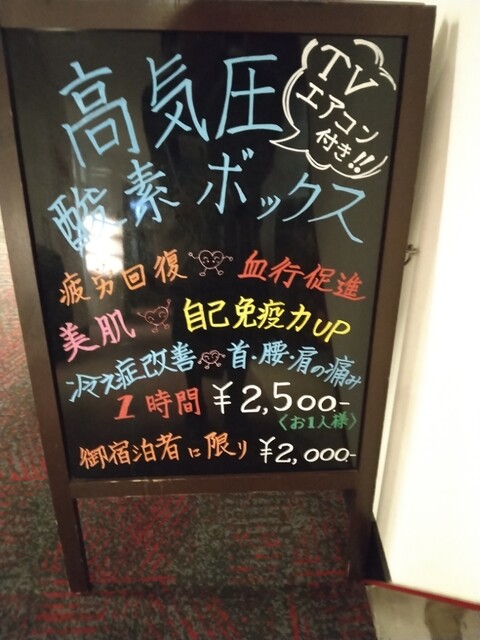 高気圧
TV
エアコン
付き!!
酸素ボックス
疲労回復 血行促進
美肌 自己免疫力UP
冷え症改善 首・腰・肩の痛み
1時間 ¥2,500-
〈お1人様〉
御宿泊者に限り ¥2,000-